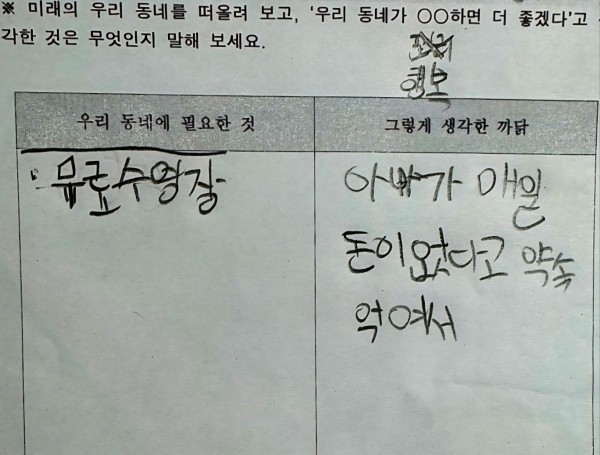 ※ 미래의 우리 동네를 떠올려 보고, '우리 동네가 ○○하면 더 좋겠다'고
각한 것은 무엇인지 말해 보세요.
행복
우리 동네에 필요한 것
그렇게 생각한 까닭
뮤료수영장
아빠가 매일
돈이 없다고 약속
억여서